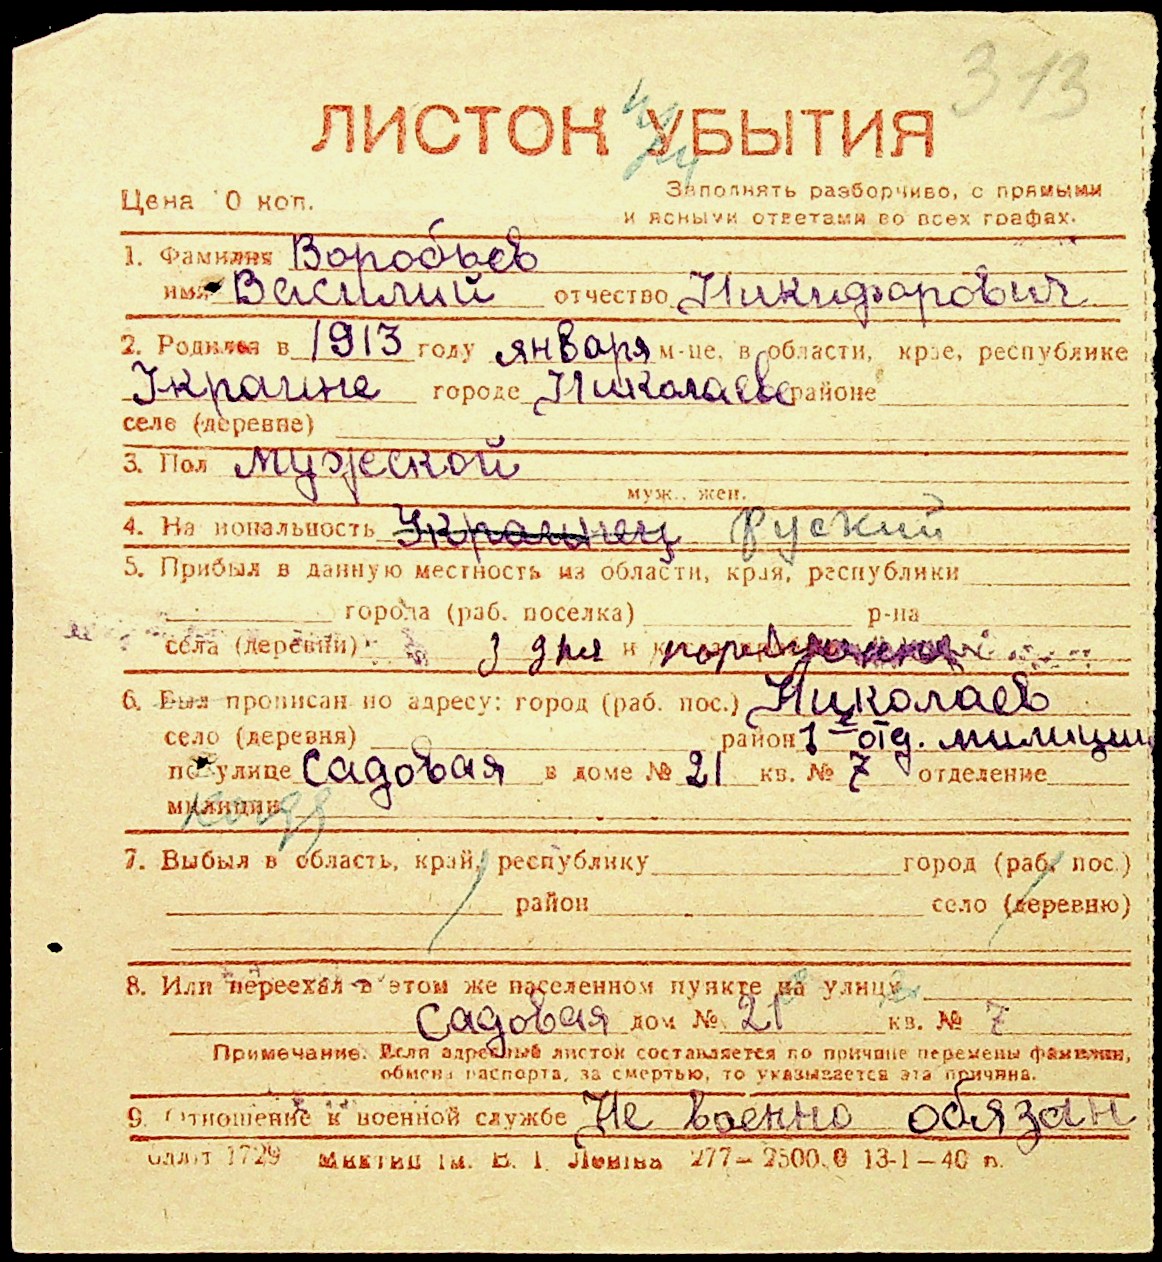 313
ЛИСТОК УБЫТИЯ
Цена 10 коп.
Заполнять разборчиво, с прямыми
и ясными ответами во всех графах.
1. Фамилия Воробьев
имя Василий отчество Никифорович
2. Родился в 1913 году января м-це, в области, крае, республике
Украине городе Николаеве районе
селе (деревне)
3. Пол мужеской
муж., жен.
4. Национальность Украинец Руский
5. Прибыл в данную местность из области, края, республики
города (раб. поселка) р-на
села (деревни) з дня
6. Был прописан по адресу: город (раб. пос.) Николаев
село (деревня) район 1 е отд. милиции
по улице Садовая в доме № 21 кв. № 7 отделение
милиции
7. Выбыл в область, край, республику город (раб. пос.)
район село (деревню)
8. Или переехал в этом же населенном пункте на улицу
Садовая дом № 21 кв. № 7
Примечание. Если адресный листок составляется по причине перемены фамилии,
обмена паспорта, за смертью, то указывается эта причина.
9. Отношение к военной службе Не военно обязан
1729 ім. В. І. Леніна 277—2500.0 13-1—40 п.